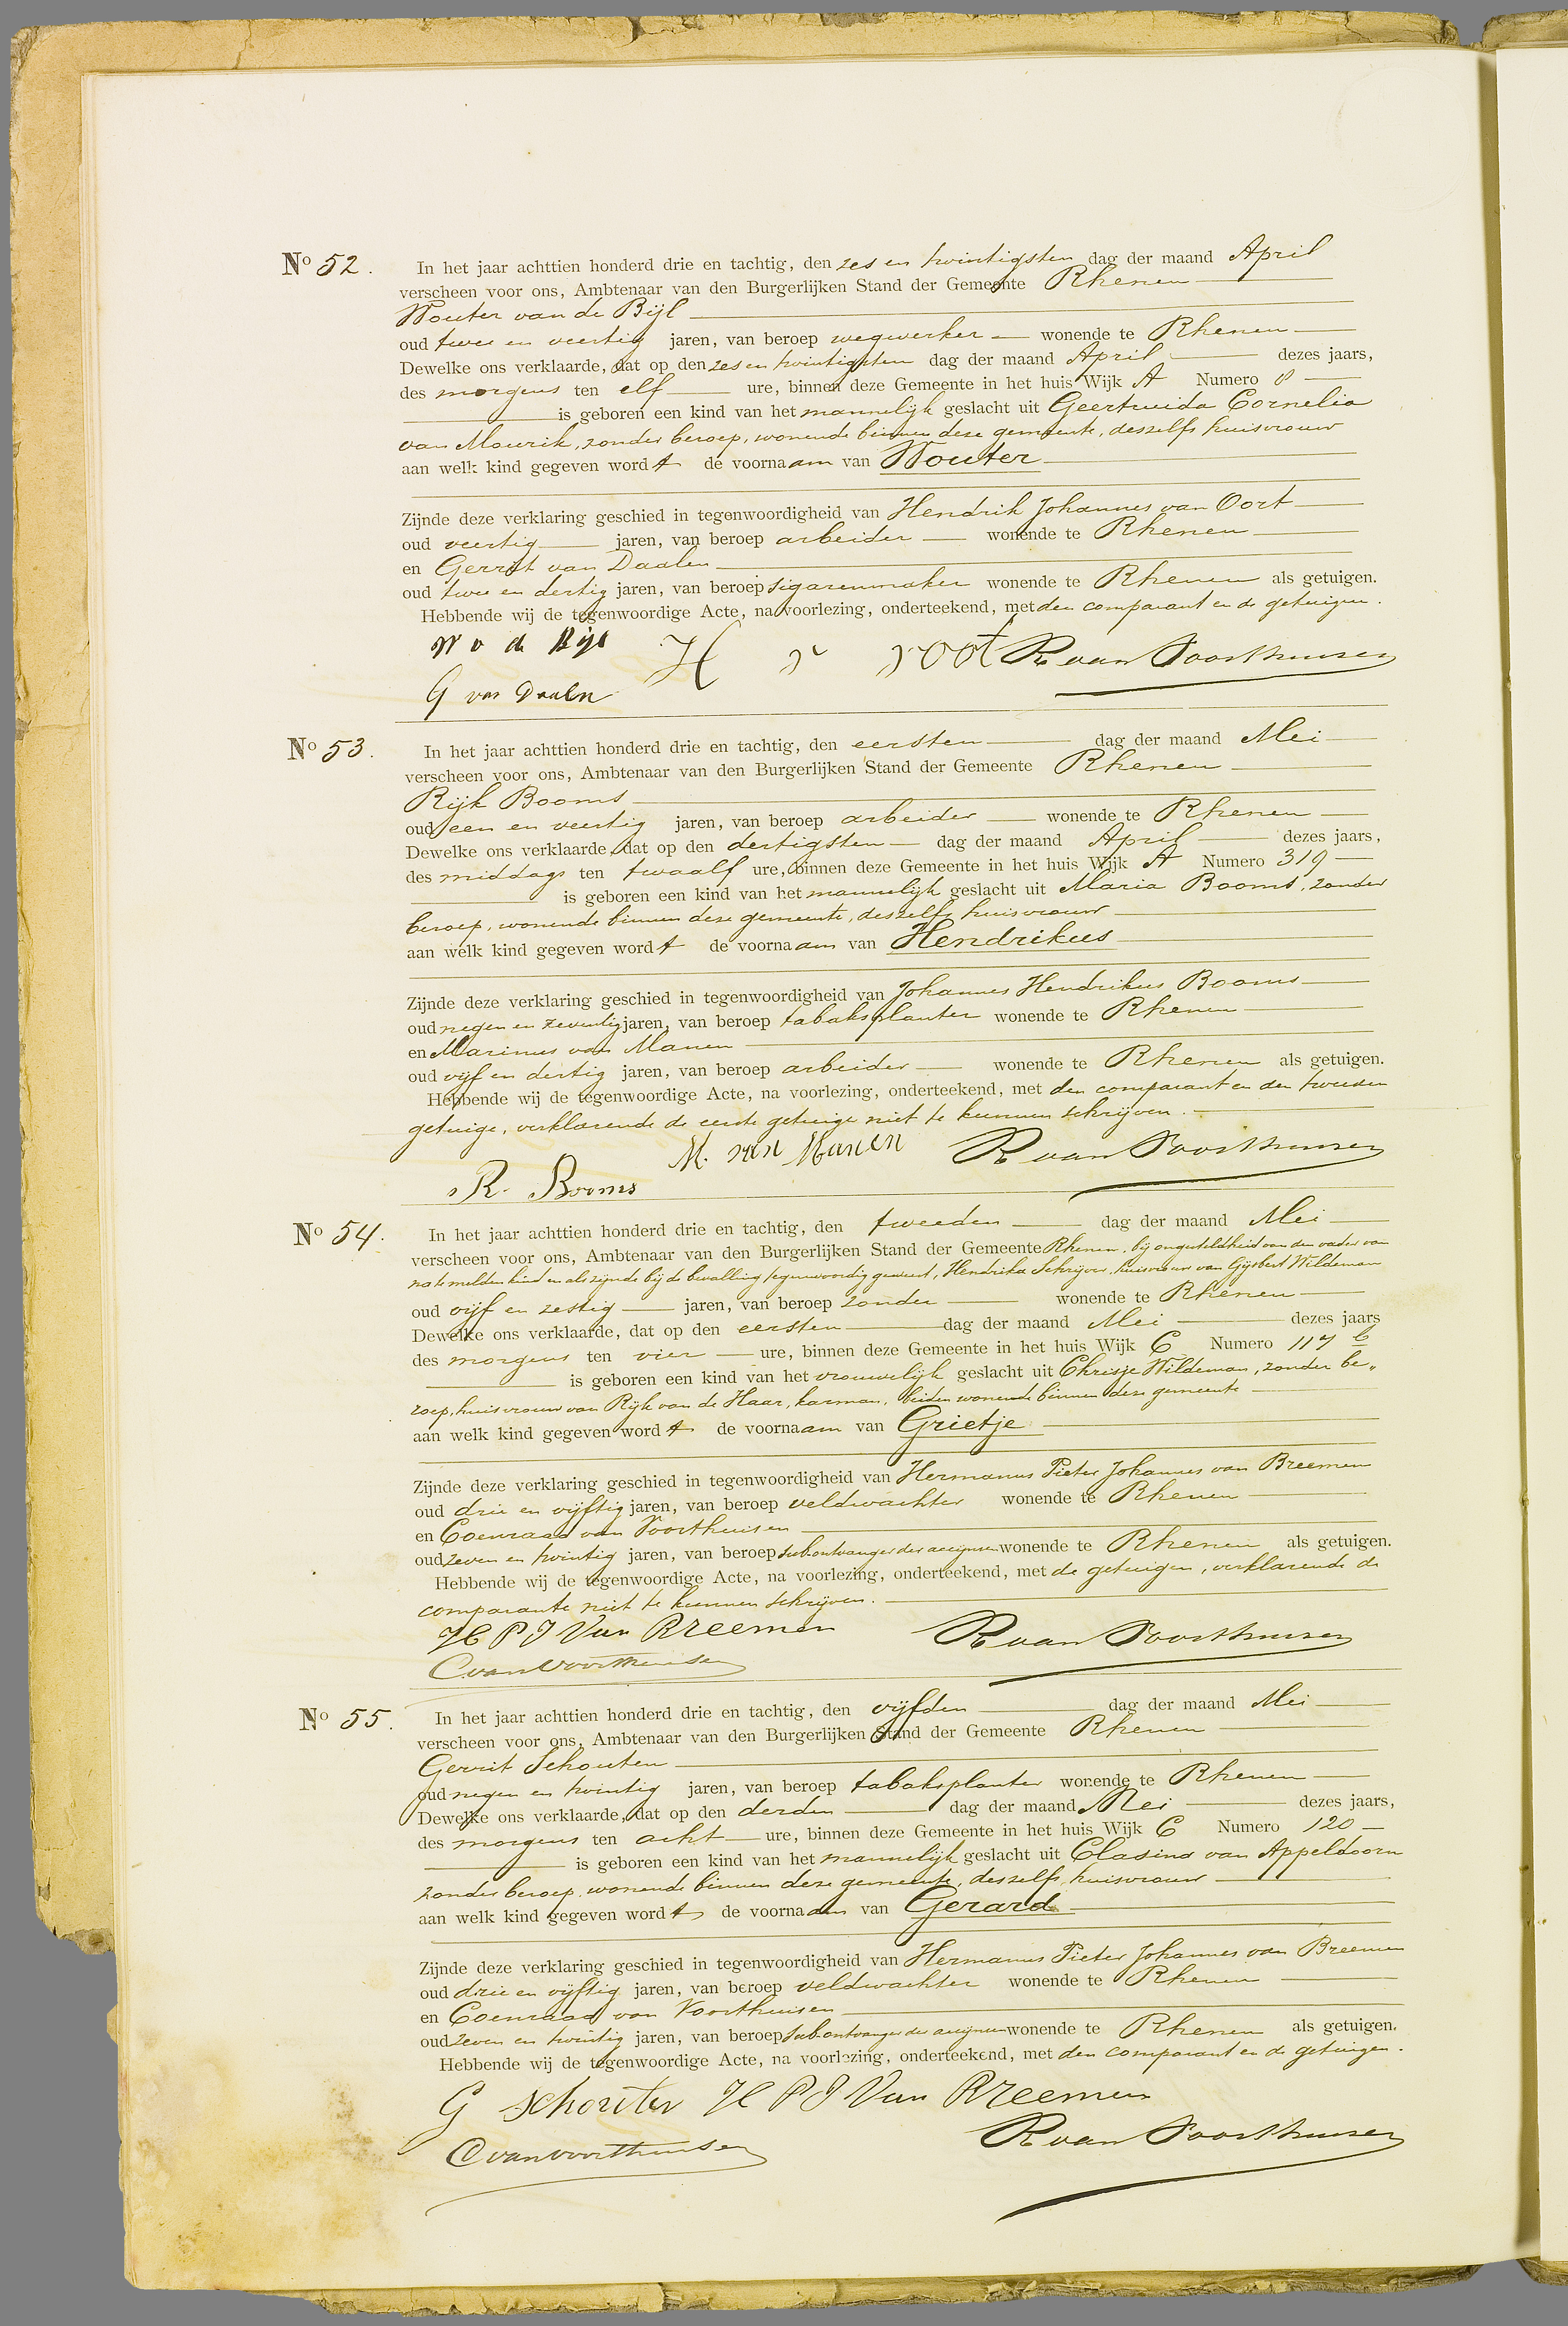 No 52. In het jaar achttien honderd drie en tachtig, den zes en twintigsten dag der maand April
verscheen voor ons, Ambtenaar van den Burgerlijken Stand der Gemeente Rhenen
Wouter van de Bijl
oud twee en veertig jaren, van beroep wegwerker wonende te Rhenen
Dewelke ons verklaarde, dat op den zes en twintigsten dag der maand April dezes jaars,
des morgens ten elf ure, binnen deze Gemeente in het huis Wijk A Numero 8
is geboren een kind van het mannelijk geslacht uit Geertruida Cornelia
van Mourik, zonder beroep, wonende binnen deze gemeente, deszelfs huisvrouw
aan welk kind gegeven wordt de voornaam van Wouter
Zijnde deze verklaring geschied in tegenwoordigheid van Hendrik Johannes van Oort
oud veertig jaren, van beroep arbeider wonende te Rhenen
en Gerrit van Daalen
oud twee en dertig jaren, van beroep sigarenmaker wonende te Rhenen als getuigen.
Hebbende wij de tegenwoordige Acte, na voorlezing, onderteekend, met den comparant en de getuigen.
W v de Bijl H R van Voorthuisen
G van Daalen
No 53. In het jaar achttien honderd drie en tachtig, den eersten dag der maand Mei
verscheen voor ons, Ambtenaar van den Burgerlijken Stand der Gemeente Rhenen
Rijk Booms
oud een en veertig jaren, van beroep arbeider wonende te Rhenen
Dewelke ons verklaarde, dat op den dertigsten dag der maand April dezes jaars,
des middags ten twaalf ure, binnen deze Gemeente in het huis Wijk A Numero 319
is geboren een kind van het mannelijk geslacht uit Maria Booms, zonder
beroep, wonende binnen deze gemeente, deszelfs huisvrouw
aan welk kind gegeven wordt de voornaam van Hendrikus
Zijnde deze verklaring geschied in tegenwoordigheid van Johannes Hendrikus Booms
oud negen en zeventig jaren, van beroep tabaksplanter wonende te Rhenen
en Marinus van Manen
oud vijf en dertig jaren, van beroep arbeider wonende te Rhenen als getuigen.
Hebbende wij de tegenwoordige Acte, na voorlezing, onderteekend, met den comparant en den tweeden
getuige, verklarende de eerste getuige niet te kunnen schrijven.
M. van Manen R van Voorthuisen
R. Booms
No 54. In het jaar achttien honderd drie en tachtig, den tweeden dag der maand Mei
verscheen voor ons, Ambtenaar van den Burgerlijken Stand der Gemeente Rhenen, bij ongesteldheid van den vader van
na te melden kind en als zijnde bij de bevalling tegenwoordig geweest, Hendrika Schrijver, huisvrouw van Gijsbert Wildeman
oud vijf en zestig jaren, van beroep zonder wonende te Rhenen
Dewelke ons verklaarde, dat op den eersten dag der maand Mei dezes jaars
des morgens ten vier ure, binnen deze Gemeente in het huis Wijk C Numero 117 b
is geboren een kind van het vrouwelijk geslacht uit Chrisje Wildeman, zonder be„
roep, huisvrouw van Rijk van de Haar, karman, beiden wonende binnen deze gemeente
aan welk kind gegeven wordt de voornaam van Grietje
Zijnde deze verklaring geschied in tegenwoordigheid van Hermanus Pieter Johannes van Breemen
oud drie en vijftig jaren, van beroep veldwachter wonende te Rhenen
en Coenraad van Voorthuisen
oud zeven en twintig jaren, van beroep subontvanger der accijnsen wonende te Rhenen als getuigen.
Hebbende wij de tegenwoordige Acte, na voorlezing, onderteekend, met de getuigen, verklarende de
comparante niet te kunnen schrijven.
H P J Van Breemen R van Voorthuisen
C van Voorthuisen
No 55. In het jaar achttien honderd drie en tachtig, den vijfden dag der maand Mei
verscheen voor ons, Ambtenaar van den Burgerlijken Stand der Gemeente Rhenen
Gerrit Schouten
oud negen en twintig jaren, van beroep tabaksplanter wonende te Rhenen
Dewelke ons verklaarde, dat op den derden dag der maand Mei dezes jaars,
des morgens ten acht ure, binnen deze Gemeente in het huis Wijk C Numero 120
is geboren een kind van het mannelijk geslacht uit Clasina van Appeldoorn
zonder beroep, wonende binnen deze gemeente, deszelfs huisvrouw
aan welk kind gegeven wordt de voornaam van Gerard
Zijnde deze verklaring geschied in tegenwoordigheid van Hermanus Pieter Johannes van Breemen
oud drie en vijftig jaren, van beroep veldwachter wonende te Rhenen
en Coenraad van Voorthuisen
oud zeven en twintig jaren, van beroep subontvanger der accijnsen wonende te Rhenen als getuigen.
Hebbende wij de tegenwoordige Acte, na voorlezing, onderteekend, met den comparant en de getuigen.
G Schouten H P J Van Breemen
C van Voorthuisen R van Voorthuisen